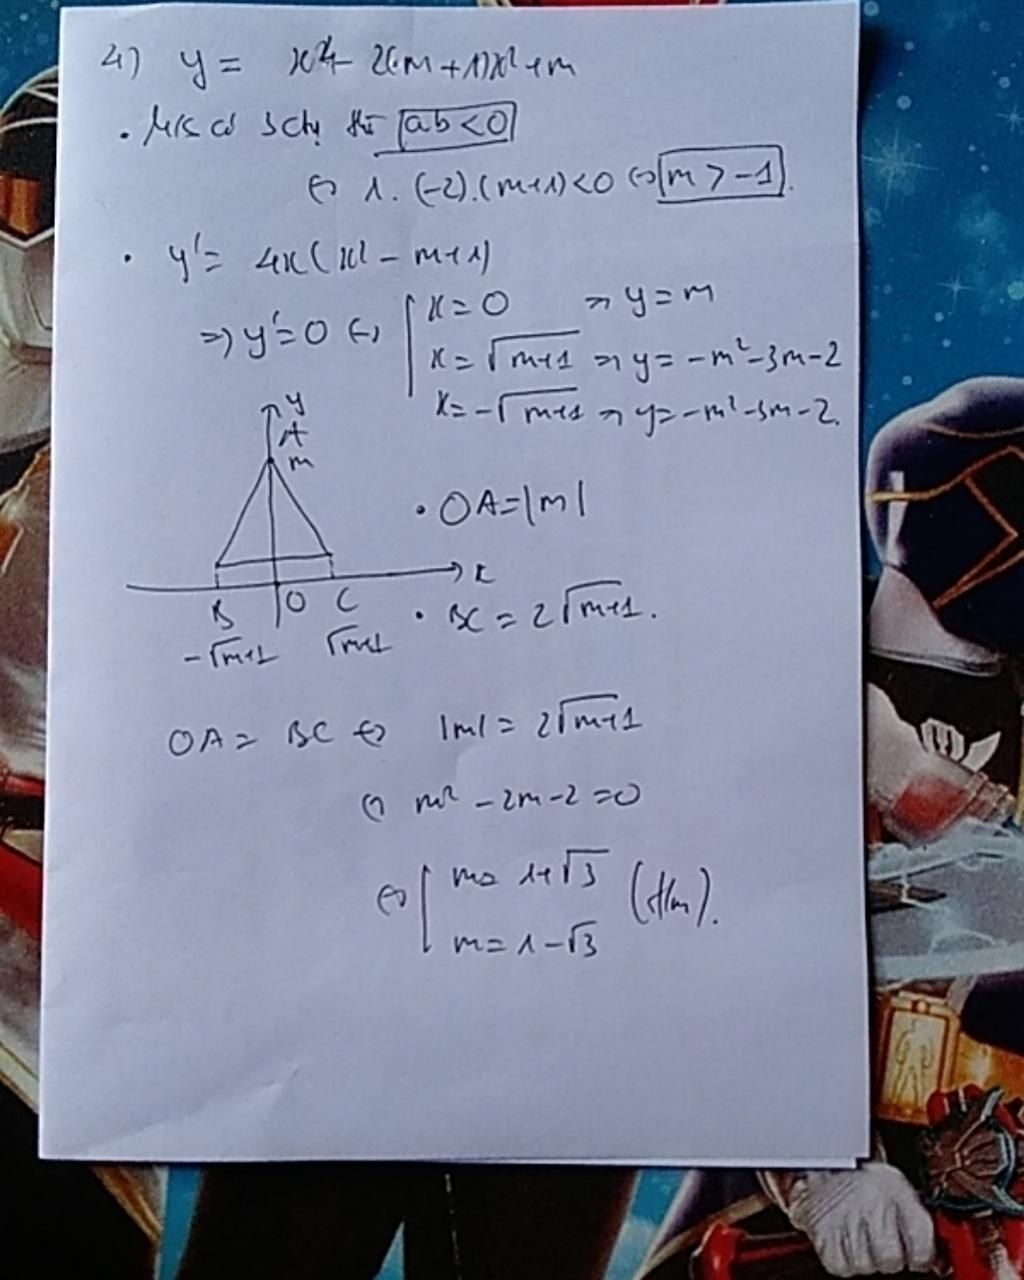 4) y = x⁴ - 2(m + 1)x² + m
• có 3 ctrị thì ab < 0
⇔ 1. (-2).(m+1) < 0 ⇔ m > -1.
• y' = 4x(x² - m+1)
⇒ y' = 0 ⇔ x = 0 ⇒ y = m
x = √m+1 ⇒ y = -m² - 3m - 2
x = -√m+1 ⇒ y = -m² - 3m - 2.
y
A
m
• OA = |m|
x
B O C
-√m+1 √m+1
• BC = 2√m+1.
OA = BC ⇔ |m| = 2√m+1
⇔ m² - 2m - 2 = 0
⇔ m = 1+√3 (t/m).
m = 1-√3